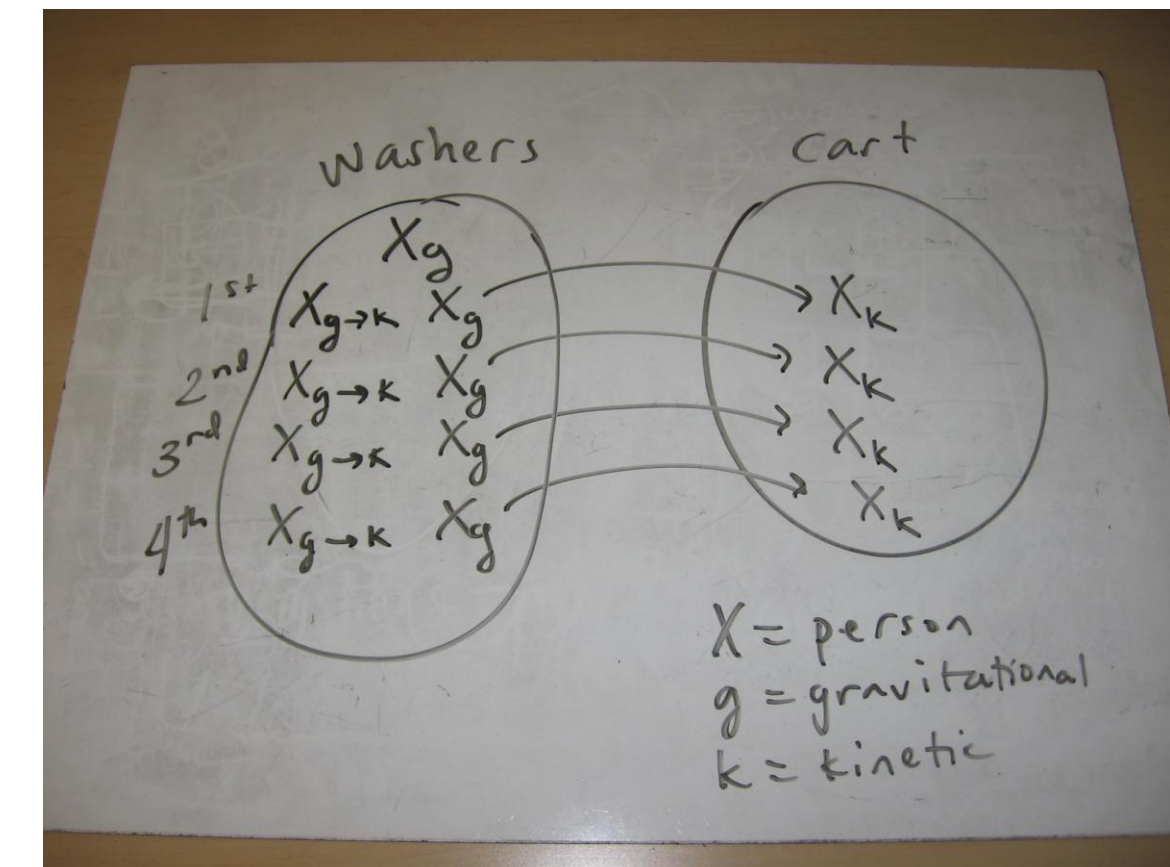 Washers
Cart
Xg
1st Xg→k Xg Xk
2nd Xg→k Xg Xk
3rd Xg→k Xg Xk
4th Xg→k Xg Xk
X = person
g = gravitational
k = kinetic